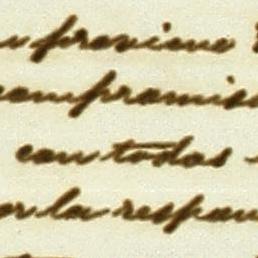 proviene
compromiso
con todos
or la respon